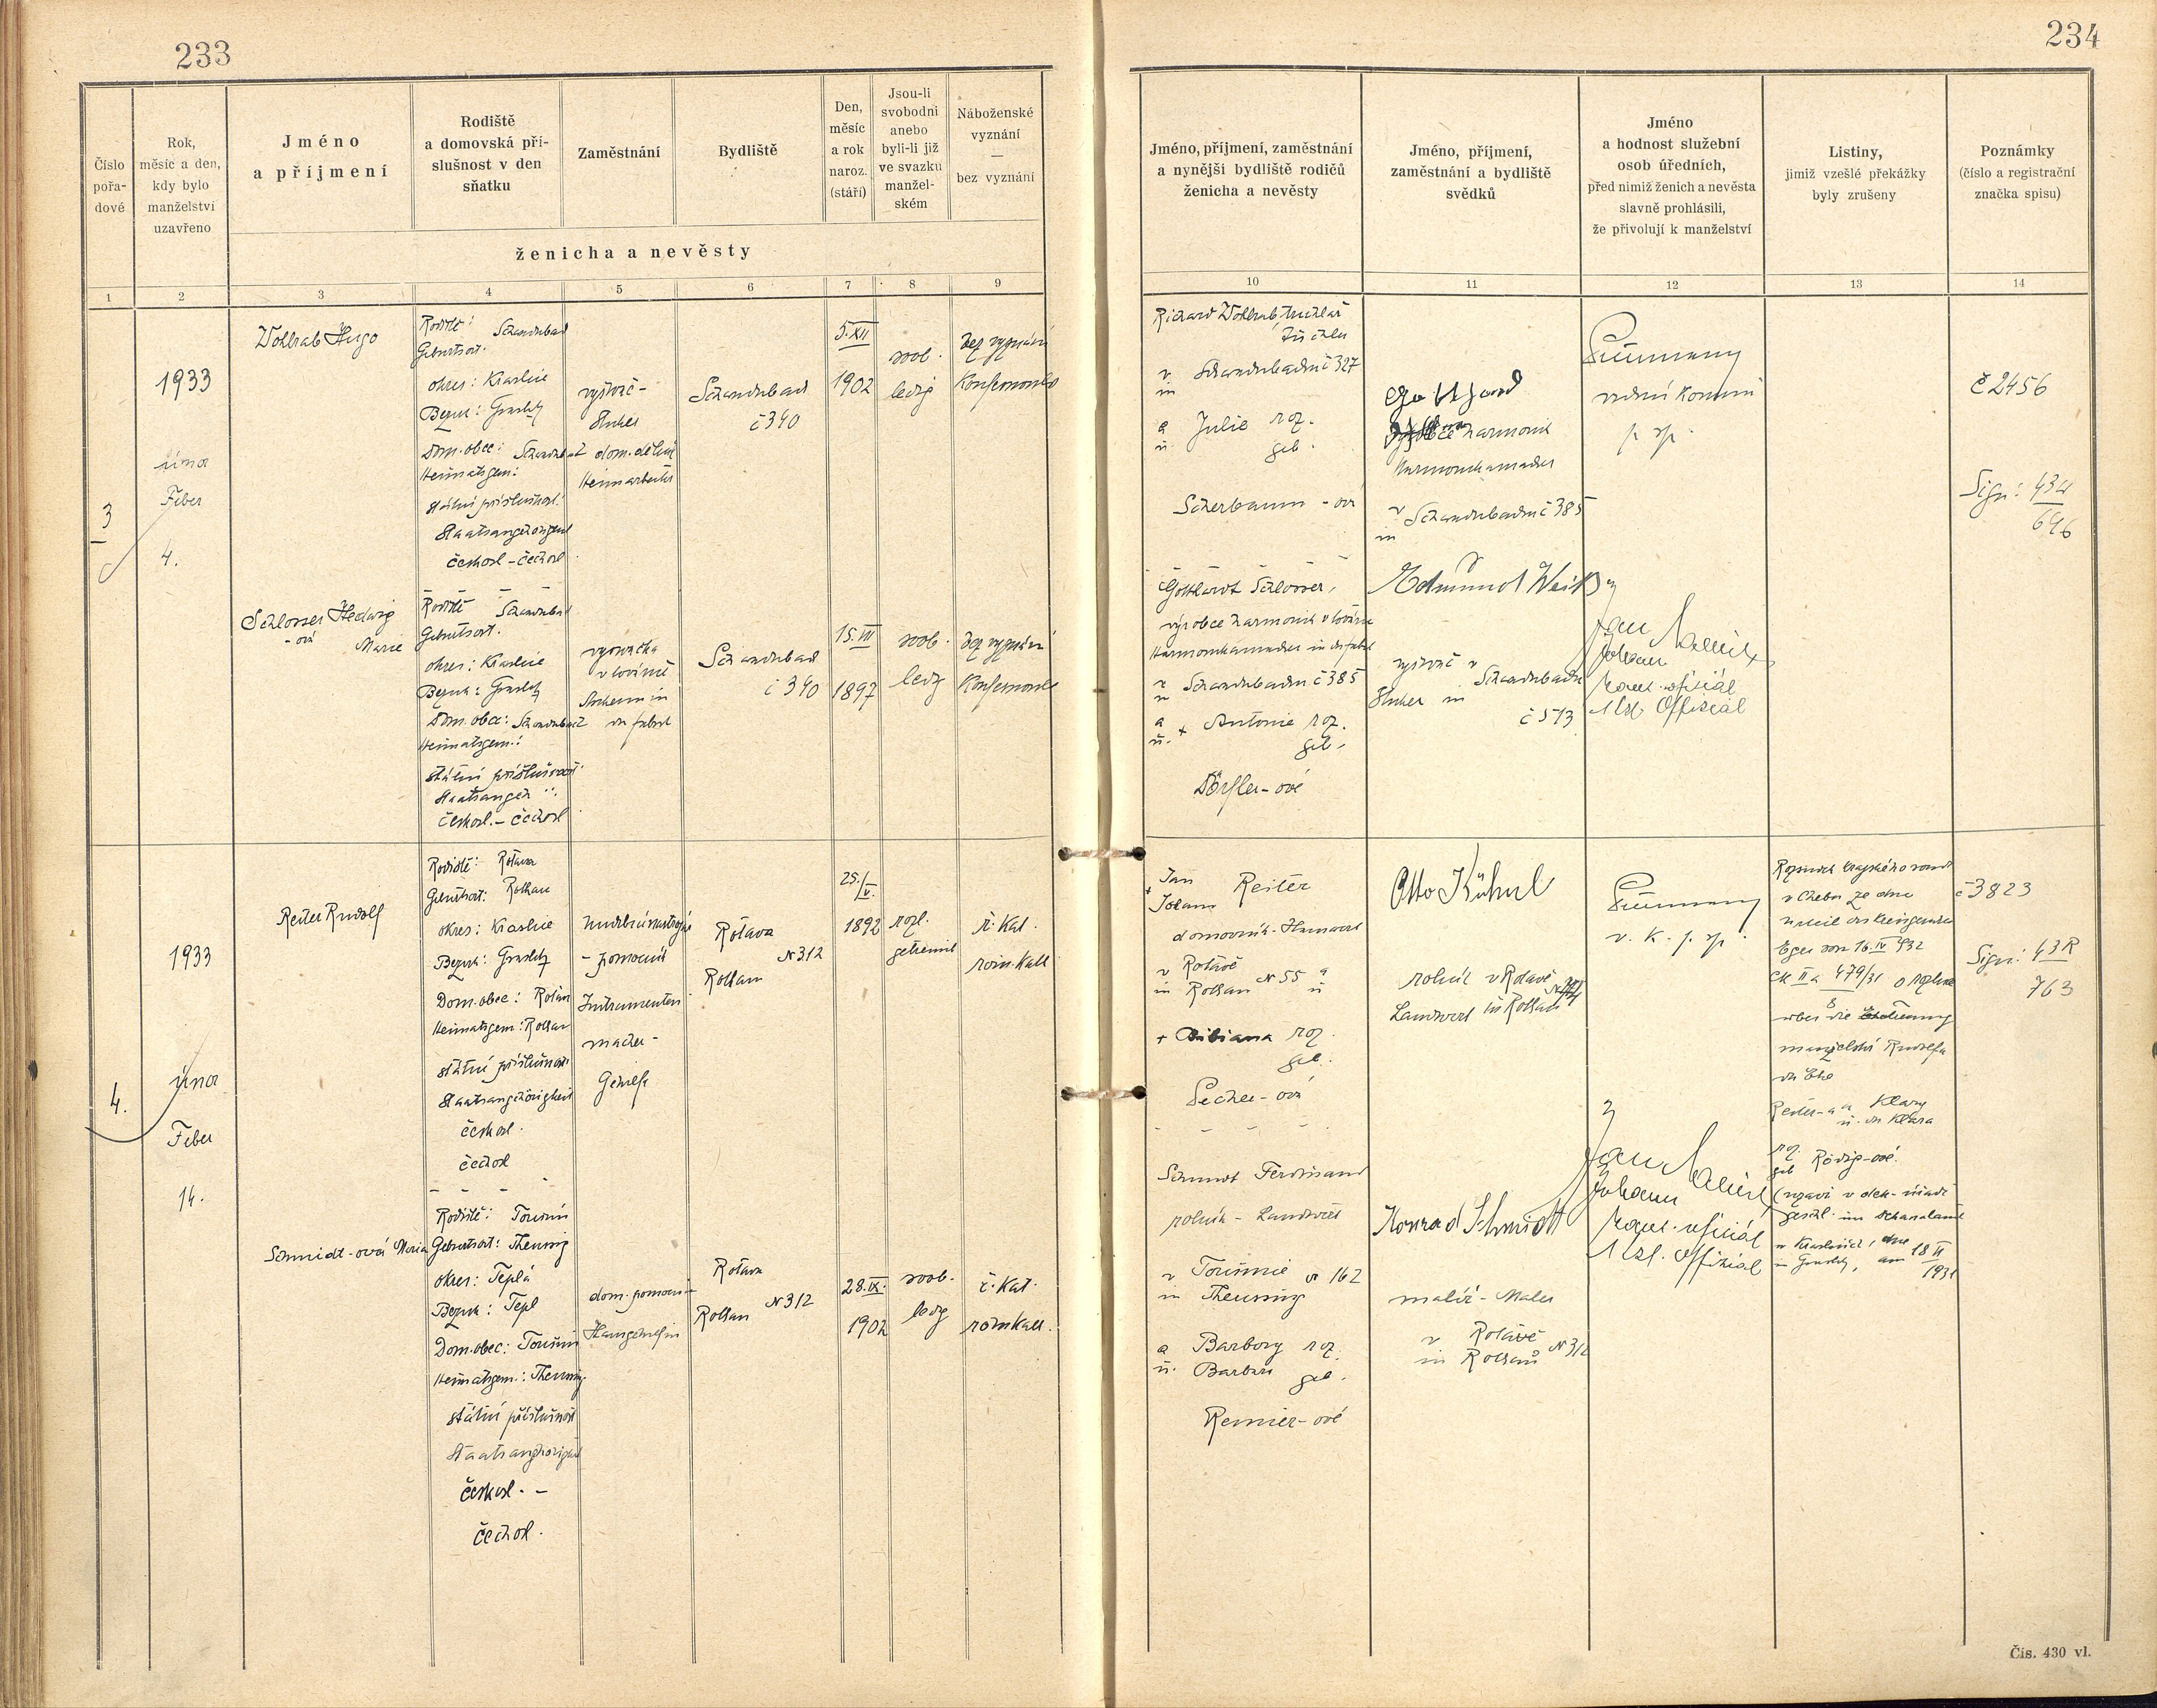 233
234
Číslo
pořa-
dové
Rok,
měsíc a den,
kdy bylo
manželství
uzavřeno
Jméno
a příjmení
Rodiště
a domovská pří-
slušnost v den
sňatku
Zaměstnání
Bydliště
Den,
měsíc
a rok
naroz.
(stáří)
Jsou-li
svobodni
anebo
byli-li již
ve svazku
manžel-
ském
Náboženské
vyznání
—
bez vyznání
ženicha a nevěsty
Jméno, příjmení, zaměstnání
a nynější bydliště rodičů
ženicha a nevěsty
Jméno, příjmení,
zaměstnání a bydliště
svědků
Jméno
a hodnost služební
osob úředních,
před nimiž ženich a nevěsta
slavně prohlásili,
že přivolují k manželství
Listiny,
jimiž vzešlé překážky
byly zrušeny
Poznámky
(číslo a registrační
značka spisu)
1 2 3 4 5 6 7 8 9
10 11 12 13 14
3
1933
února
Feber
4.
Wohlrab Hugo
Rodiště: Schwaderbach
Geburtsort:
okres: Kraslice
Bezirk: Graslitz
Dom. obec:
Heimatsgem:
státní příslušnost:
Staatsangehörigkeit
českosl - čechosl
vyšívač -
Sticker
dom. dělník
Heimarbeiter
č 340
5. XII
1902
svob.
ledig
bez vyznání
Konfessionslos
Schlosser Hedwig
- ová Marie
Rodiště
Geburtsort.
okres: Kraslice
Bezirk: Graslitz
Dom. obec:
Heimatsgem.:
státní příslušnost
českosl. - čechosl
v továrně
č 340
15. III
1897
svob.
ledig
bez vyznání
Konfessionslos
Richard Wohlrab, truhlář
Tischler
v
in č 327
a Julie roz.
u. geb.
Scherbaum - ová
Gotthardt Schlosser,
výrobce harmonik v továrně
Harmonikamacher in der Fabrik
v č 385
in
a + Antonie roz.
u. geb.
Dörfler - ové
harmonik
Harmonikamacher
v č 385
in
Edmund Weiß
vyšívač v
Sticker in
č 513
vrchní komisař
Jan
Johann
kanc. oficiál
Kzl. Offizial
č 2456
Sign: 43u
646
4.
1933
února
Feber
14.
Reiter Rudolf
Rodiště: Rotava
Geburtsort: Rothau
okres: Kraslice
Bezirk: Graslitz
Dom. obec: Rotava
Heimatsgem: Rothau
státní příslušnost
Staatsangehörigkeit
českosl.
čechosl
- pomocník
Instrumenten
macher -
Gehilfe
Rotava
N 312
Rothau
25./V.
1892
rozl.
getrennt
ř. kat.
röm. kath
Schmidt - ová Maria
Rodiště: Toužim
Geburtsort: Theusing
okres: Teplá
Bezirk: Tepl
Dom. obec: Toužim
Heimatsgem.: Theusing
státní příslušnost
Staatsangehörigkeit
českosl. -
čechosl.
dom. pomocnice
Hausgehilfin
Rotava
N 312
Rothau
28. IX.
1902
svob.
ledig
ř. kat.
röm kath.
+ Jan Reiter
Johann
domovník - Hauswart
v Rotavě
in Rothau N 55 a
u
+ Bibiana roz.
geb.
Pecher - ová
Schmidt Ferdinand
rolník - Landwirt
v Toužimi N 162
in Theusing
a Barbory roz.
u. Barbara geb.
Renner - ové
Otto Kühnl
rolník v Rotavě
Landwirt in Rothau
Konrad Schmidt
malíř - Maler
v Rotavě
in Rothau N 312
v. k.
Jan
Johann
kanc. oficiál
Kzl. Offizial
Rozsudek krajského soudu
v Chebu ze dne
Urteil des Kreisgerichtes
Eger vom 16. IV 932
Ck II a 479/31 o rozluce
über die
manželství Rudolfa
der Ehe
Reiter - a a Klary
u. der Klara
roz.
geb
(uzavř. v okr. úřadě
v Kraslicích, dne
in Graslitz, am 18 II
1931
č 3823
Sign: 43R
763
Čís. 430 vl.